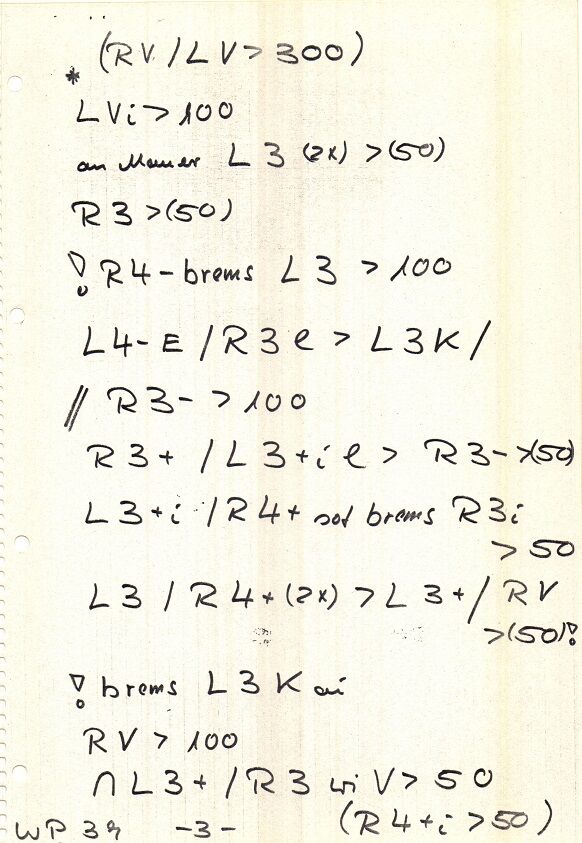 (RV/LV>300)
*
LVi>100
an Mauer L3 (2x) >(50)
R3>(50)
! R4-brems L3 > 100
L4-E /R3 e > L3K/
// R3- >100
R3+ /L3+i e > R3- >(50)
L3+i /R4+ sof brems R3i
>50
L3 / R4+(2x) >L3+/ RV
>(50)!
! brems L3K ai
RV > 100
∩L3+ /R3 wi V> 50
(R4+i >50)
WP 39 -3-